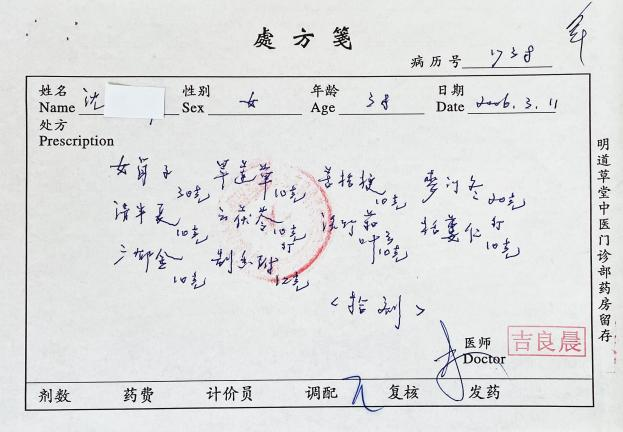 處方笺
病历号 1738
姓名 沈 性别 女 年龄 38 日期 2006.3.11
Name Sex Age Date
处方
Prescription
女贞子 旱莲草 苦桔梗 麦门冬
30克 10克 10克 20克
清半夏 云茯苓 淡竹茹 栝蒌仁 打
10克 10克 10克 10克
广郁金 制香附
10克 12克
<拾剂>
医师 吉良晨
Doctor
剂数 药费 计价员 调配 复核 发药
明道草堂中医门诊部药房留存